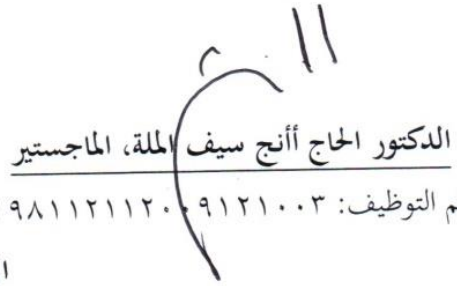 الدكتور الحاج أأنج سيف الملة، الماجستير
م التوظيف: ٩٨١١٢١١٢٠٠٩١٢١٠٠٣